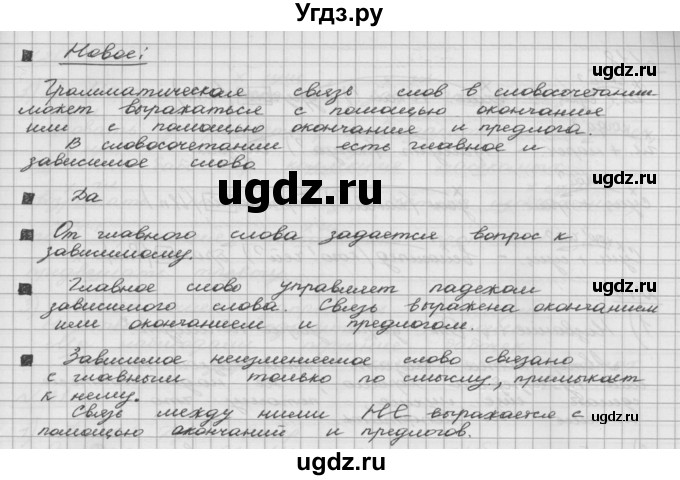 Угдз.ру
■ Новое:
Грамматическая связь слов в словосочетании
может выражаться с помощью окончания
или с помощью окончания и предлога.
В словосочетании есть главное и
зависимое слово
ugdz.ru
■ Да
■ От главного слова задается вопрос к
зависимому.
■ Главное слово управляет падежом
зависимого слова. Связь выражена окончанием
или окончанием и предлогом.
■ Зависимое неизменяемое слово связано
с главным только по смыслу, примыкает
к нему.
Связь между ними НЕ выражается с
помощью окончаний и предлогов.
ugdz.ru